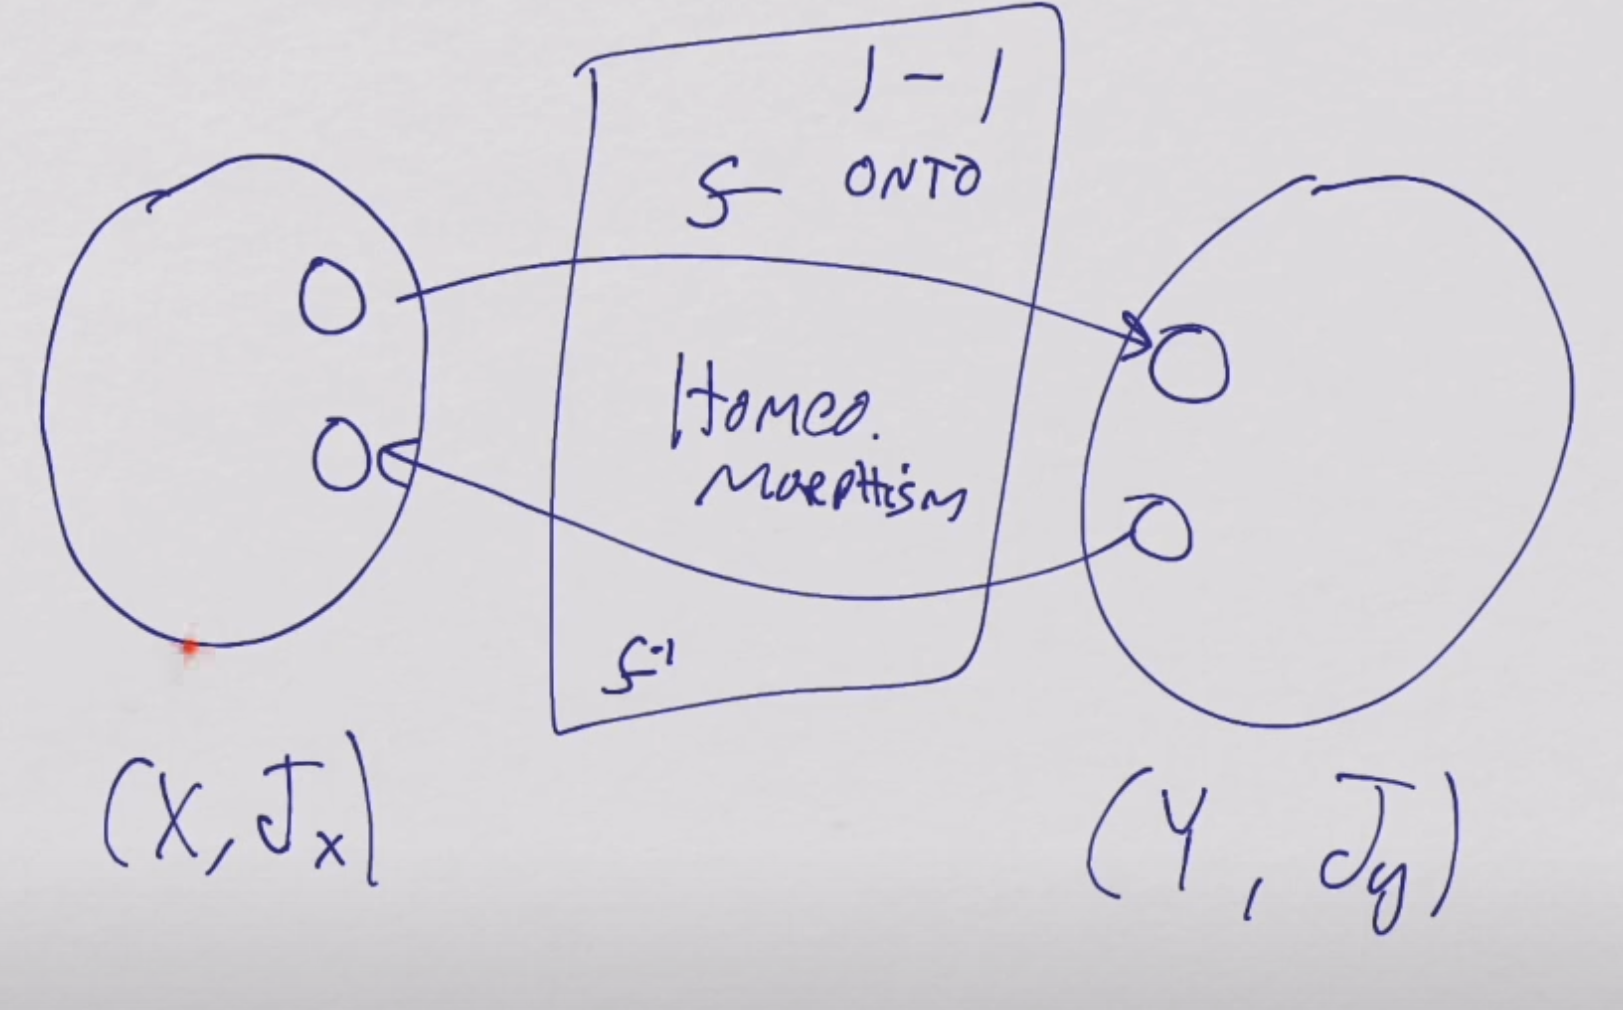 1-1
f ONTO
Homeo.
Morphism
f⁻¹
(X, J_x)
(Y, J_y)